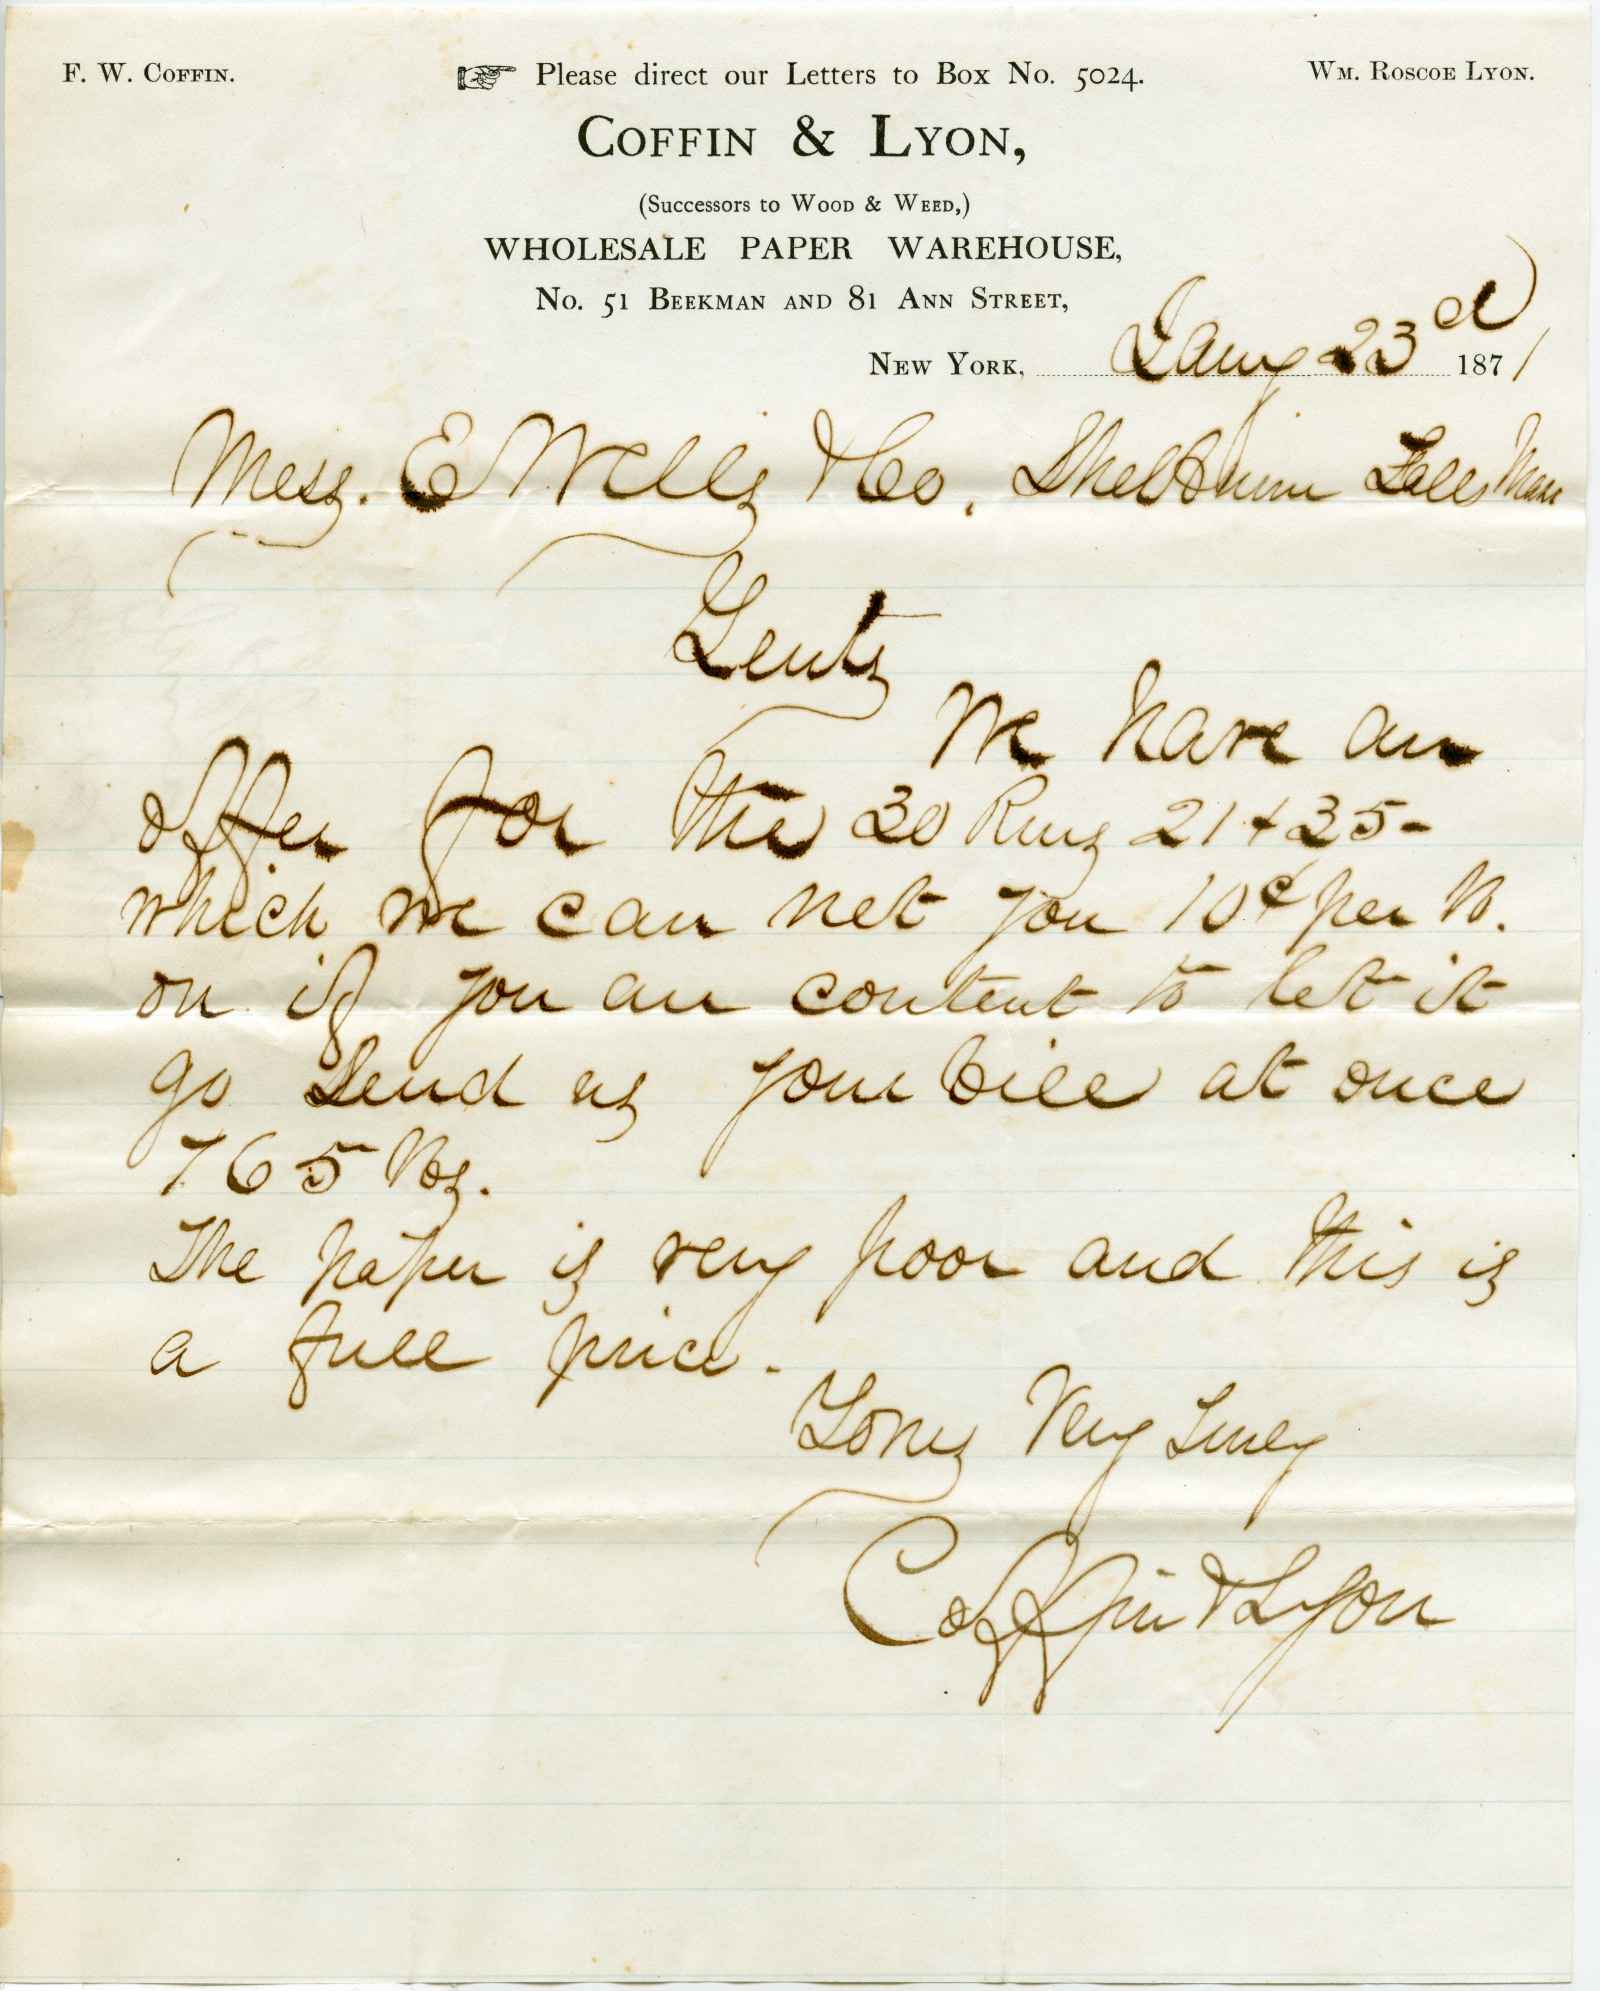 F. W. COFFIN.
Please direct our Letters to Box No. 5024.
WM. ROSCOE LYON.
COFFIN & LYON,
(Successors to WOOD & WEED,)
WHOLESALE PAPER WAREHOUSE,
No. 51 BEEKMAN AND 81 ANN STREET,
NEW YORK, Jany 23d 1871
Mess. E Wells & Co. Shelburn Falls Mass
Gents
We have an
offer for the 30 Rms 21 + 35-
which we can net you 10¢ per lb.
on if you are content to let it
go Send us your bill at once
765 lbs.
The paper is very poor and this is
a full price.
Yours Very Truly
Coffin & Lyon